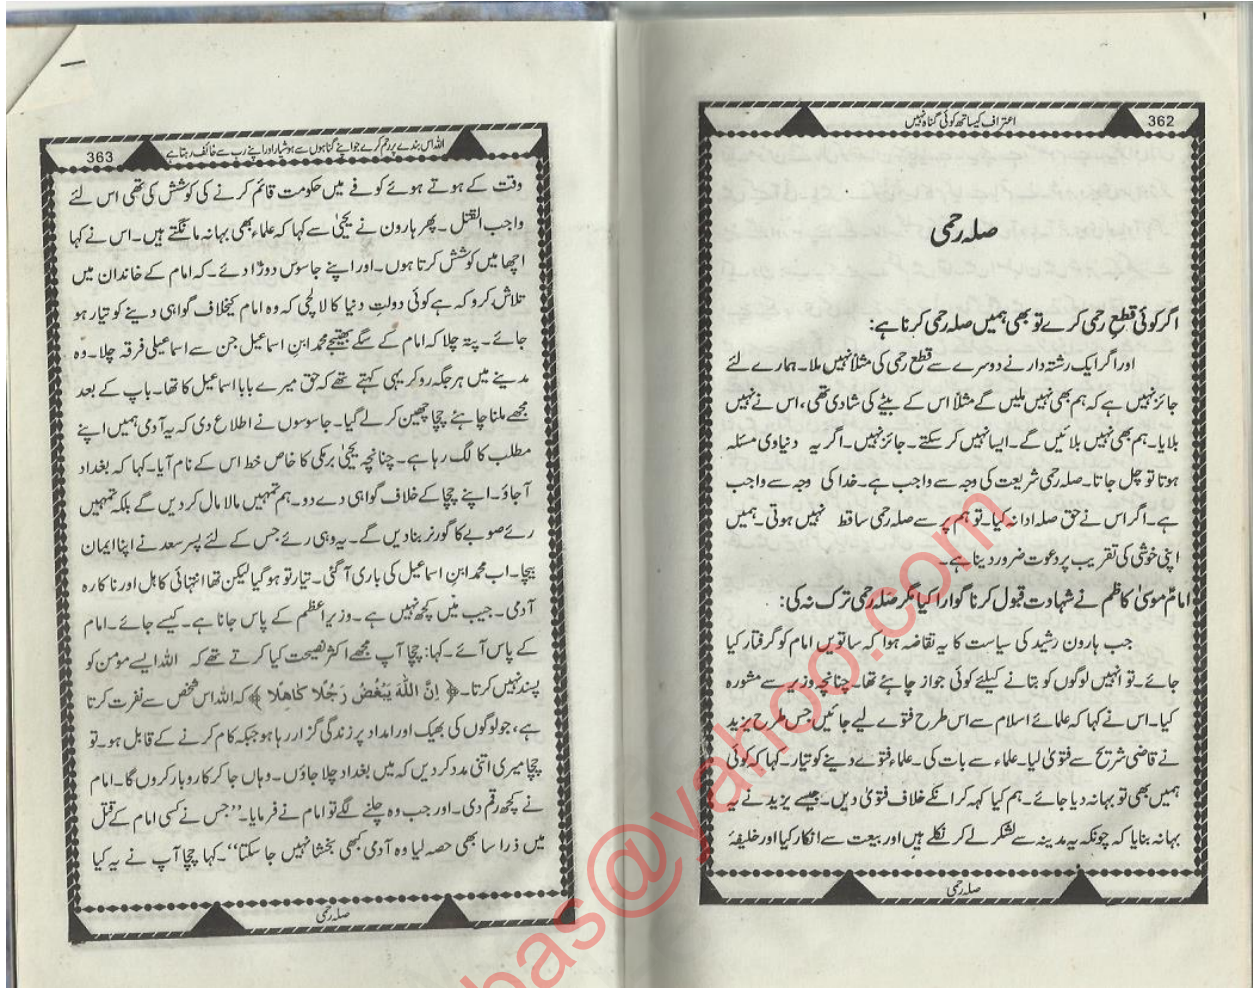 362
اعتراف کیساتھ کوئی گناہ نہیں
صلہ رحمی
اگر کوئی قطع رحمی کرے تو بھی ہمیں صلہ رحمی کرنا ہے:
اور اگر ایک رشتہ دار نے دوسرے سے قطع رحمی کی مثلاً نہیں ملا۔ ہمارے لئے
جائز نہیں ہے کہ ہم بھی نہیں ملیں گے مثلاً اس کے بیٹے کی شادی تھی، اس نے نہیں
بلایا۔ ہم بھی نہیں بلائیں گے۔ ایسا نہیں کر سکتے۔ جائز نہیں۔ اگر یہ دنیاوی مسئلہ
ہوتا تو چل جاتا۔ صلہ رحمی شریعت کی وجہ سے واجب ہے۔ خدا کی وجہ سے واجب
ہے۔ اگر اس نے حق صلہ ادا نہ کیا۔ تو ہم پر سے صلہ رحمی ساقط نہیں ہوتی۔ ہمیں
اپنی خوشی کی تقریب پر دعوت ضرور دینا ہے۔
امام موسیٰ کاظم نے شہادت قبول کرنا گوارا کیا مگر صلہ رحمی ترک نہ کی:
جب ہارون رشید کی سیاست کا یہ تقاضہ ہوا کہ ساتویں امام کو گرفتار کیا
جائے۔ تو انہیں لوگوں کو بتانے کیلئے کوئی جواز چاہئے تھا۔ چنانچہ وزیر سے مشورہ
کیا۔ اس نے کہا کہ علمائے اسلام سے اس طرح فتوے لیے جائیں جس طرح یزید
نے قاضی شریح سے فتویٰ لیا۔ علماء سے بات کی۔ علماء فتوے دینے کو تیار۔ کہا کہ کوئی
ہمیں بھی تو بہانہ دیا جائے۔ ہم کیا کہہ کر انکے خلاف فتویٰ دیں۔ جیسے یزید نے یہ
بہانہ بنایا کہ چونکہ یہ مدینہ سے لشکر لے کر نکلے ہیں اور بیعت سے انکار کیا اور خلیفۂ
صلہ رحمی
363
اللہ اس بندے پر رحم کرے جو اپنے گناہوں سے ہوشیار اور اپنے رب سے خائف رہتا ہے
وقت کے ہوتے ہوئے کوفے میں حکومت قائم کرنے کی کوشش کی تھی اس لئے
واجب القتل۔ پھر ہارون نے یحییٰ سے کہا کہ علماء بھی بہانہ مانگتے ہیں۔ اس نے کہا
اچھا میں کوشش کرتا ہوں۔ اور اپنے جاسوس دوڑا دئے۔ کہ امام کے خاندان میں
تلاش کرو کہ ہے کوئی دولتِ دنیا کا لالچی کہ وہ امام کیخلاف گواہی دینے کو تیار ہو
جائے۔ پتہ چلا کہ امام کے سگے بھتیجے محمد ابنِ اسماعیل جن سے اسماعیلی فرقہ چلا۔ وہ
مدینے میں ہر جگہ رو کر یہی کہتے تھے کہ حق میرے بابا اسماعیل کا تھا۔ باپ کے بعد
مجھے ملنا چاہئے چچا چھین کر لے گیا۔ جاسوسوں نے اطلاع دی کہ یہ آدمی ہمیں اپنے
مطلب کا لگ رہا ہے۔ چنانچہ یحییٰ برمکی کا خاص خط اس کے نام آیا۔ کہا کہ بغداد
آجاؤ۔ اپنے چچا کے خلاف گواہی دے دو۔ ہم تمہیں مالا مال کر دیں گے بلکہ تمہیں
رئے صوبے کا گورنر بنا دیں گے۔ یہ وہی رئے جس کے لئے پسر سعد نے اپنا ایمان
بیچا۔ اب محمد ابنِ اسماعیل کی باری آگئی۔ تیار تو ہو گیا لیکن تھا انتہائی کاہل اور ناکارہ
آدمی۔ جیب میں کچھ نہیں ہے۔ وزیر اعظم کے پاس جانا ہے۔ کیسے جائے۔ امام
کے پاس آئے۔ کہا: چچا آپ مجھے اکثر نصیحت کیا کرتے تھے کہ اللہ ایسے مومن کو
پسند نہیں کرتا۔ ﴿ اِنَّ اللّٰهَ يَبْغُضُ رَجُلًا كَاهِلًا ﴾ کہ اللہ اس شخص سے نفرت کرتا
ہے، جو لوگوں کی بھیک اور امداد پر زندگی گزار رہا ہو جبکہ کام کرنے کے قابل ہو۔ تو
چچا میری اتنی مدد کر دیں کہ میں بغداد چلا جاؤں۔ وہاں جا کر کاروبار کروں گا۔ امام
نے کچھ رقم دی۔ اور جب وہ چلنے لگے تو امام نے فرمایا۔ "جس نے کسی امام کے قتل
میں ذرا سا بھی حصہ لیا وہ آدمی کبھی بخشا نہیں جا سکتا"۔ کہا چچا آپ نے یہ کیا
صلہ رحمی
bas@yahoo.com